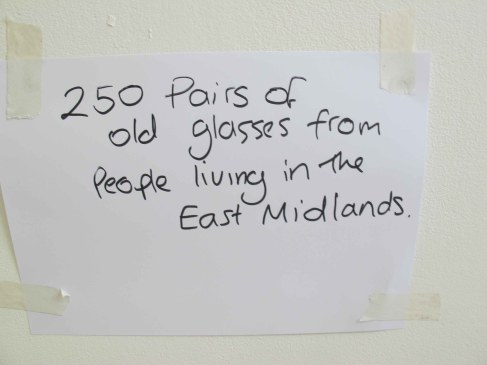 250 Pairs of
old glasses from
People living in the
East Midlands.